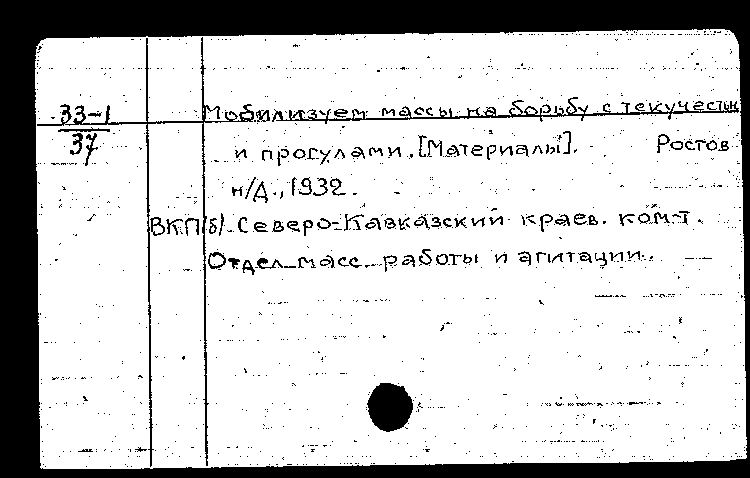 33-1
37
Мобилизуем массы на борьбу с текучестью
и прогулами. [Материалы]. Ростов
н/Д., 1932.
ВКП(б). Северо-Кавказский краев. ком-т.
Отдел масс. работы и агитации.